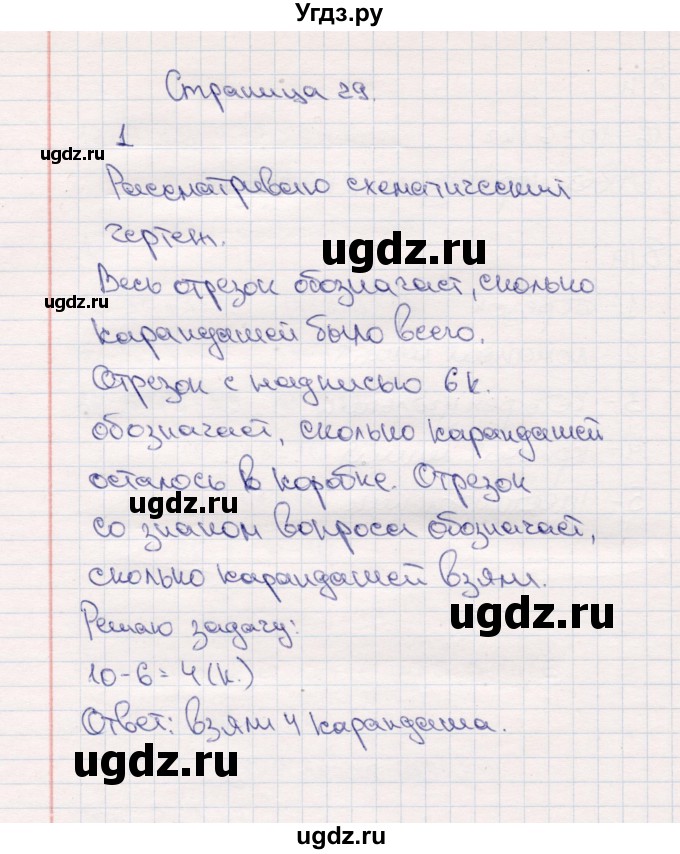 Угдз.ру
Страница 29.
1
ugdz.ru
Рассматриваю схематический
чертеж.
ugdz.ru
Весь отрезок обозначает, сколько
ugdz.ru
карандашей было всего.
Отрезок с надписью 6 к.
обозначает, сколько карандашей
осталось в коробке. Отрезок
ugdz.ru
со знаком вопроса обозначает,
сколько карандашей взяли.
ugdz.ru
Решаю задачу:
10-6=4(к.)
Ответ: взяли 4 карандаша.
ugdz.ru
ugdz.ru